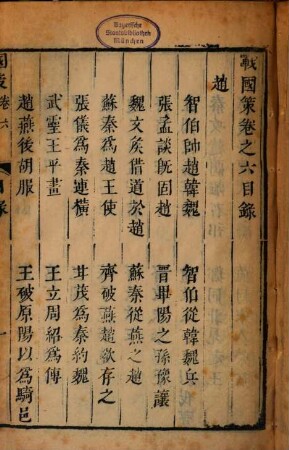 Bayerische
Staatsbibliothek
München
戰國策卷之六目錄
趙
智伯帥趙韓魏　智伯從韓魏兵
張孟談旣固趙　晋畢陽之孫豫讓
魏文矦借道於趙　蘇秦從燕之趙
蘇秦為趙王使　齊破燕趙欲存之
張儀為秦連橫　甘茂為秦約魏
武靈王平晝　王立周紹為傅
趙燕後胡服　王破原陽以為騎邑
國策卷六　目錄　一